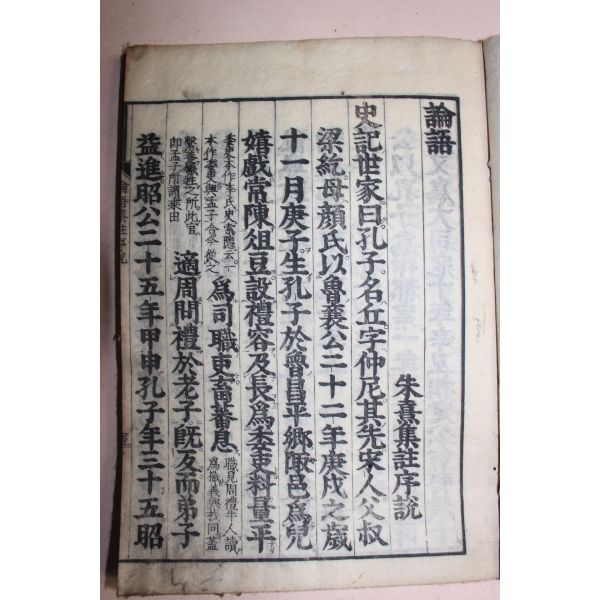 論語
朱熹集註序說
史記世家曰孔子名丘字仲尼其先宋人父叔
梁紇母顏氏以魯襄公二十二年庚戌之歲
十一月庚子生孔子於魯昌平鄉陬邑爲兒
嬉戲常陳俎豆設禮容及長爲委吏料量平
委吏本作季氏史索隱云一
本作委吏與孟子合今從之
爲司職吏畜蕃息
職見周禮牛人讀
爲樴義與杙同蓋
繫養犧牲之所此官
即孟子所謂乘田
適周問禮於老子旣反而弟子
益進昭公二十五年甲申孔子年三十五昭
論語集註序說